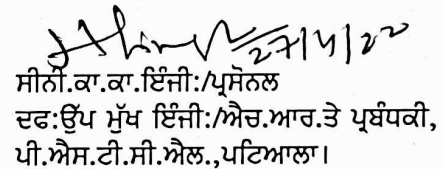 27/4/22
ਸੀਨੀ.ਕਾ.ਕਾ.ਇੰਜੀ:/ਪ੍ਰਸੋਨਲ
ਦਫ:ਉੱਪ ਮੁੱਖ ਇੰਜੀ:/ਐਚ.ਆਰ.ਤੇ ਪ੍ਰਬੰਧਕੀ,
ਪੀ.ਐਸ.ਟੀ.ਸੀ.ਐਲ.,ਪਟਿਆਲਾ।